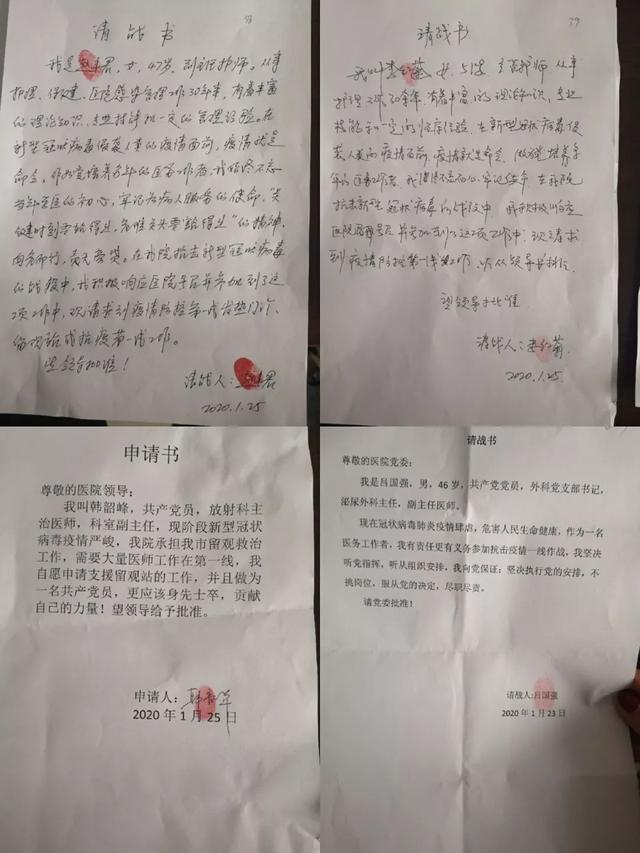 请战书
我是君，女，47岁，副主任护师。从事
护理、保健、医院感染管理工作30年来，有着丰富
的理论知识、专业技能和一定的管理经验。在
新型冠状病毒侵袭人类的疫情面前，疫情就是
命令，作为党培养多年的医务工作者，我始终不忘
当年学医的初心，牢记为病人服务的使命，
的精神，
在我院抗击新型冠状病毒
的战役中，我积极响应医院号召并参加到了这
项工作中，现请求到疫情防控第一线发热门诊、
留观站或抗疫第一线工作。
望领导批准！
请战人：君
2020.1.25
39
请战书
我叫李红菊 女 51岁 主管护师 从事
护理工作30余年，有着丰富的理论知识，专业
技能和一定的临床经验，在新型冠状病毒侵
袭人类的疫情面前，疫情就是命令，做为党培养多
年的医务工作者，我不忘初心，牢记使命，在我院
抗击新型冠状病毒的战役中，我积极响应
医院号召并参加到了这项工作中，现请求
到疫情防控第一线工作，听从领导安排。
望领导批准
请战人：李红菊
2020.1.25
申请书
尊敬的医院领导：
我叫韩韶峰，共产党员，放射科主
治医师，科室副主任，现阶段新型冠状
病毒疫情严峻，我院承担我市留观救治
工作，需要大量医师工作在第一线，我
自愿申请支援留观站的工作，并且做为
一名共产党员，更应该身先士卒，贡献
自己的力量！望领导给予批准。
申请人：韩
2020 年 1 月 25 日
请战书
尊敬的医院党委：
我是吕国强，男，46 岁，共产党党员，外科党支部书记，
泌尿外科主任，副主任医师。
现在冠状病毒肺炎疫情肆虐，危害人民生命健康，作为一名
医务工作者，我有责任更有义务参加抗击疫情一线作战，我坚决
听党指挥，听从组织安排，我向党保证：坚决执行党的安排，不
挑岗位，服从党的决定，尽职尽责。
请党委批准！
请战人：吕国强
2020 年 1 月 23 日